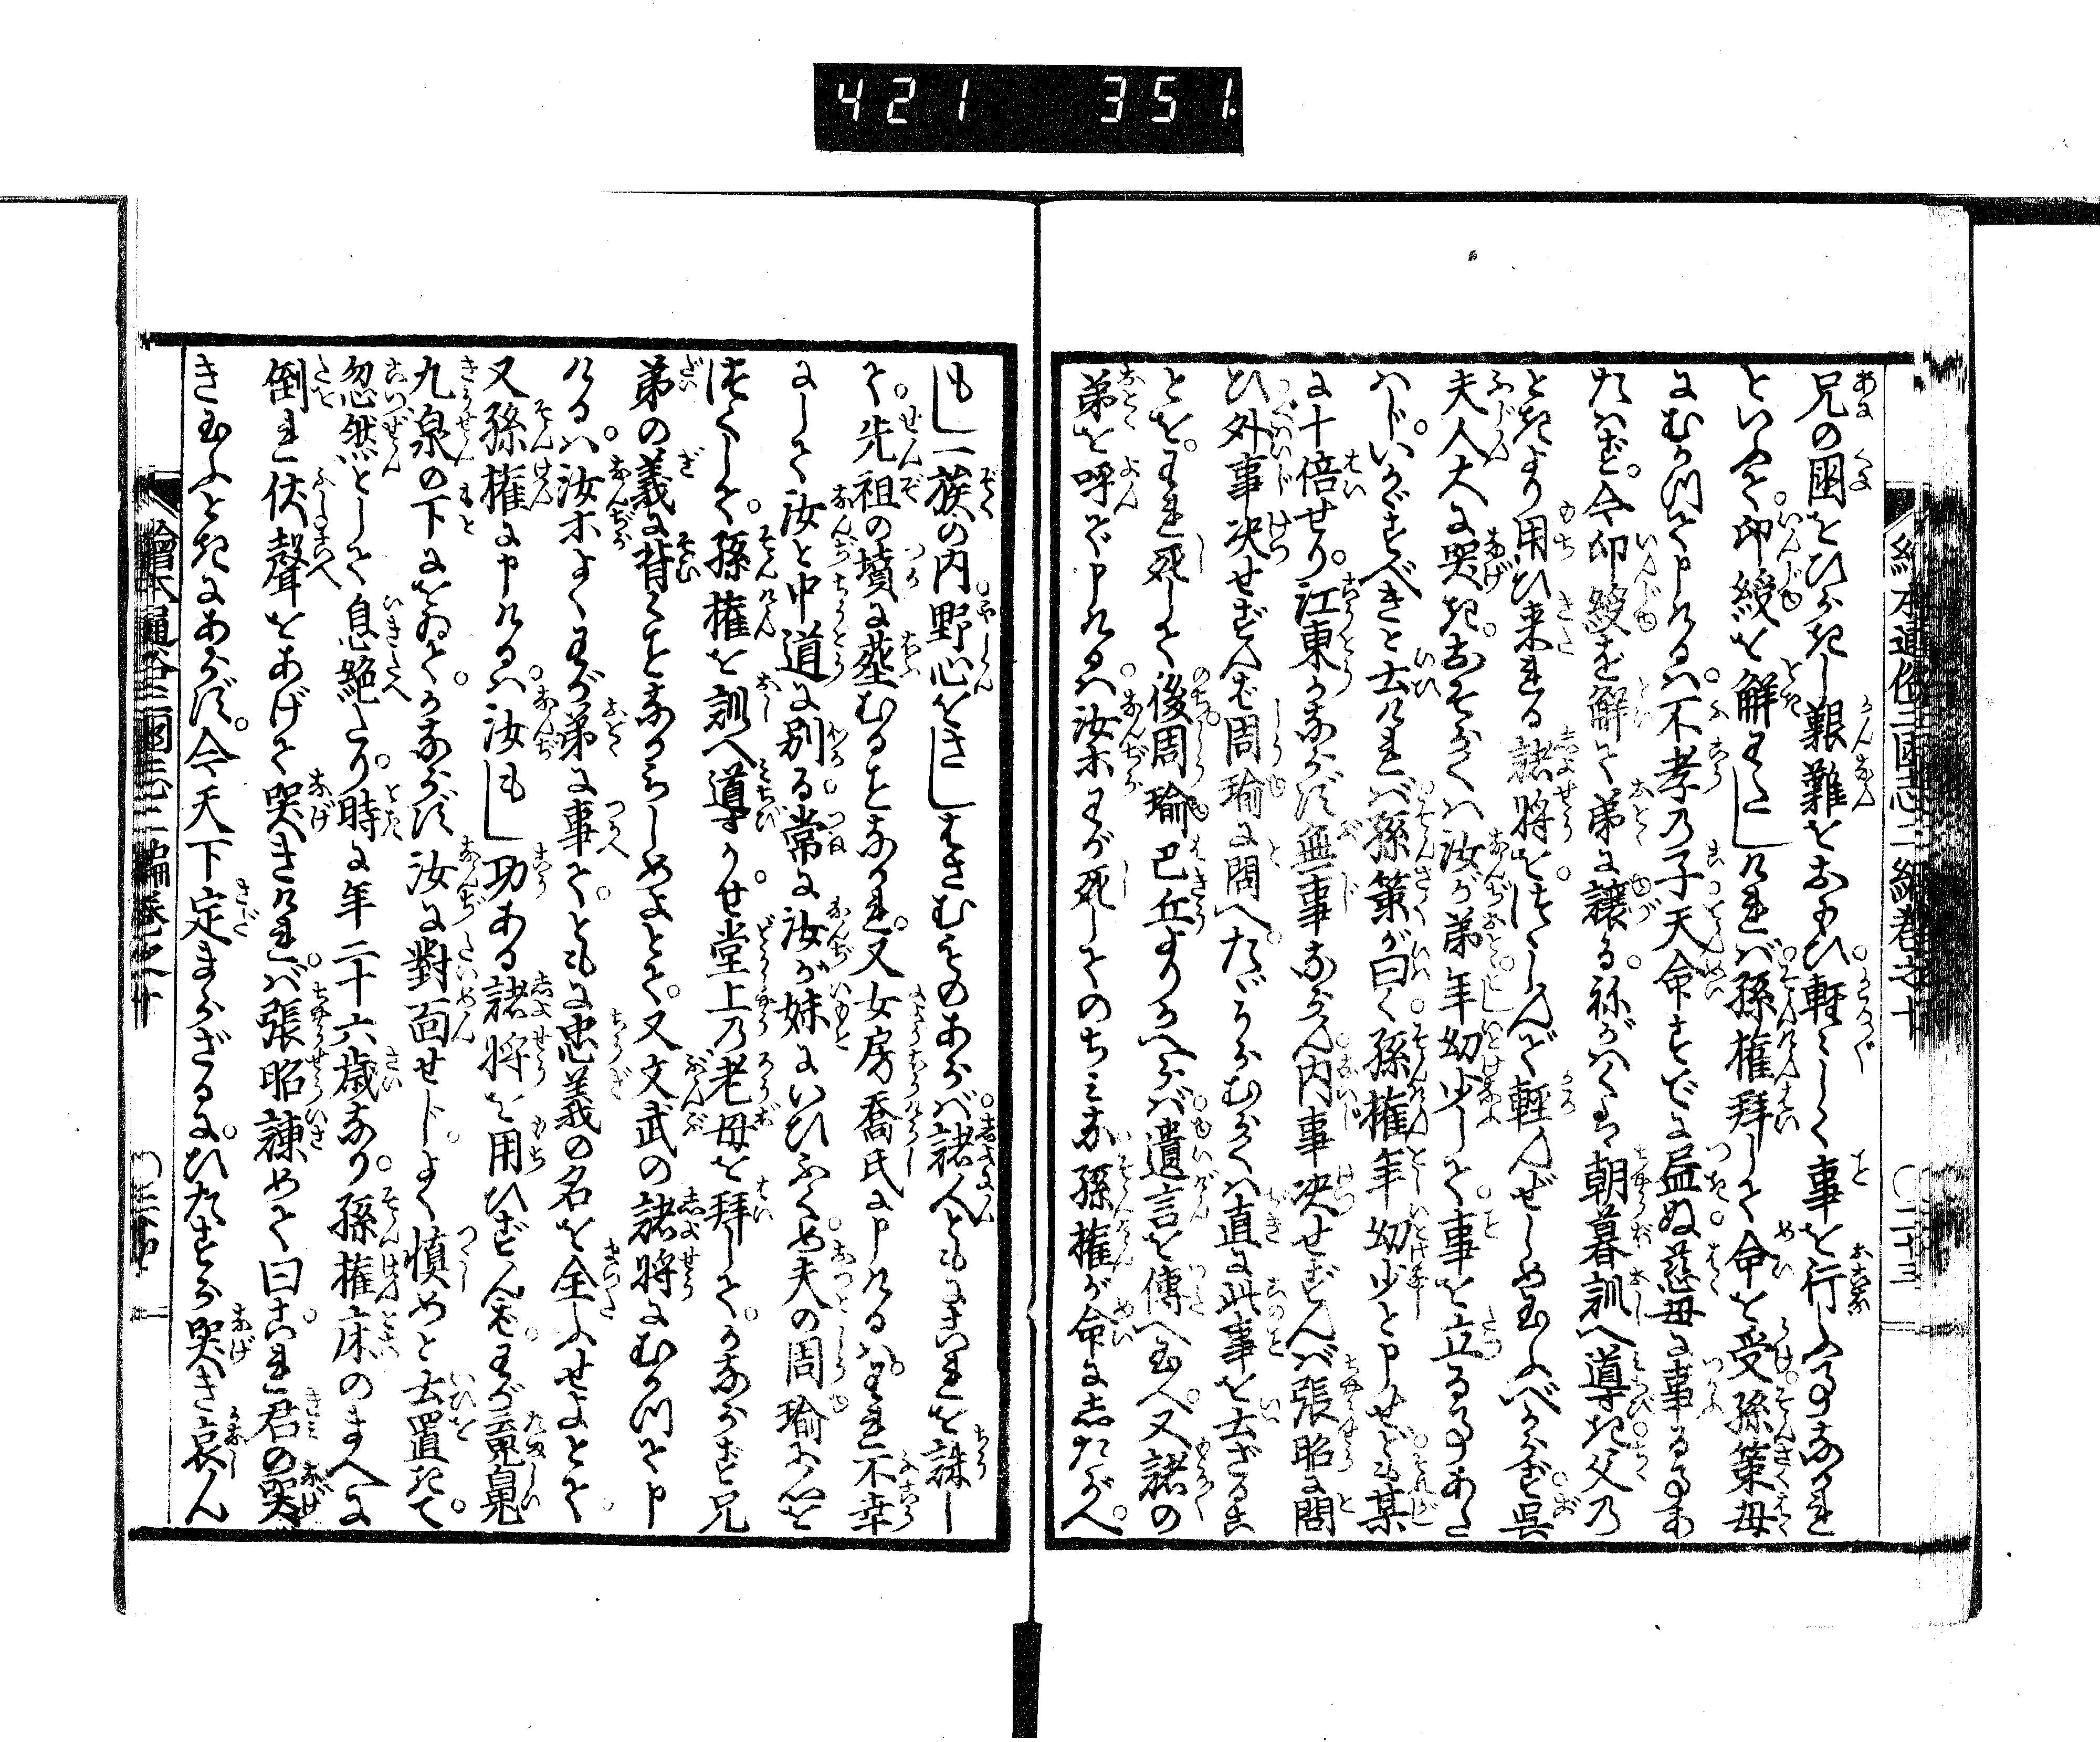 421 351
繪本通俗三國志二編卷之十 〇二十三
兄の国をひらきし艱難をおもひ。軽〻しく事を行ふ事なかれ
といふて。印綬を解わたしければ。孫権拝して命を受。孫策母
にむかつて申けるは。不孝乃子天命すでに尽ぬ。慈母に事る事あ
たはず。今印綬を解て弟に譲る。ねがはくは朝暮訓へ導き。父乃
ときより用ひ来れる諸将を。つゝしんで軽んぜしめ玉ふべからず。呉
夫人大に哭き。おそらくは汝が弟。年幼少して。事を立る事あた
はじ。いかゞすべきと云ければ。孫策が曰く。孫権年幼少と申せども。某
に十倍せり。江東かならず無事ならん。内事決せずんば張昭に問
ひ。外事決せずんば周瑜に問へ。たゞうらむらくは直に此事を云ざるこ
とを。われ死して後。周瑜巴丘よりかへらば。遺言を傳へ玉へ。又諸の
弟を呼で申けるは。汝等わが死してのちみな孫権が命にしたがへ。
もし一族の内。野心をさしはさむものあらば。諸人ともにこれを誅し
て。先祖の墳に葬むる事なかれ。又女房喬氏に申けるは。われ不幸
にして汝と中道に別る。常に汝が妹にいひふくめ。夫の周瑜に心を
つくして。孫権を訓へ導かせ。堂上乃老母を拝して。かならず兄
弟の義に背く事なからしめよとて。又文武の諸将にむかつて申
けるは。汝等よくわが弟に事て。ともに忠義の名を全ふせよとて。
又孫権に申けるは。汝もし功ある諸将を用ひずんば。わが霊魂
九泉の下にをゐて。かならず汝に對面せじ。よく慎めと云置きて。
忽然として息絶たり。時に年二十六歳なり。孫権床のまへに
倒れ伏。聲をあげて哭きければ。張昭諌めて曰。これ君の哭
き玉ふときにあらず。今天下定まらざるに。ひたすら哭き哀しん
繪本通俗三國志二編卷之十 〇二十四